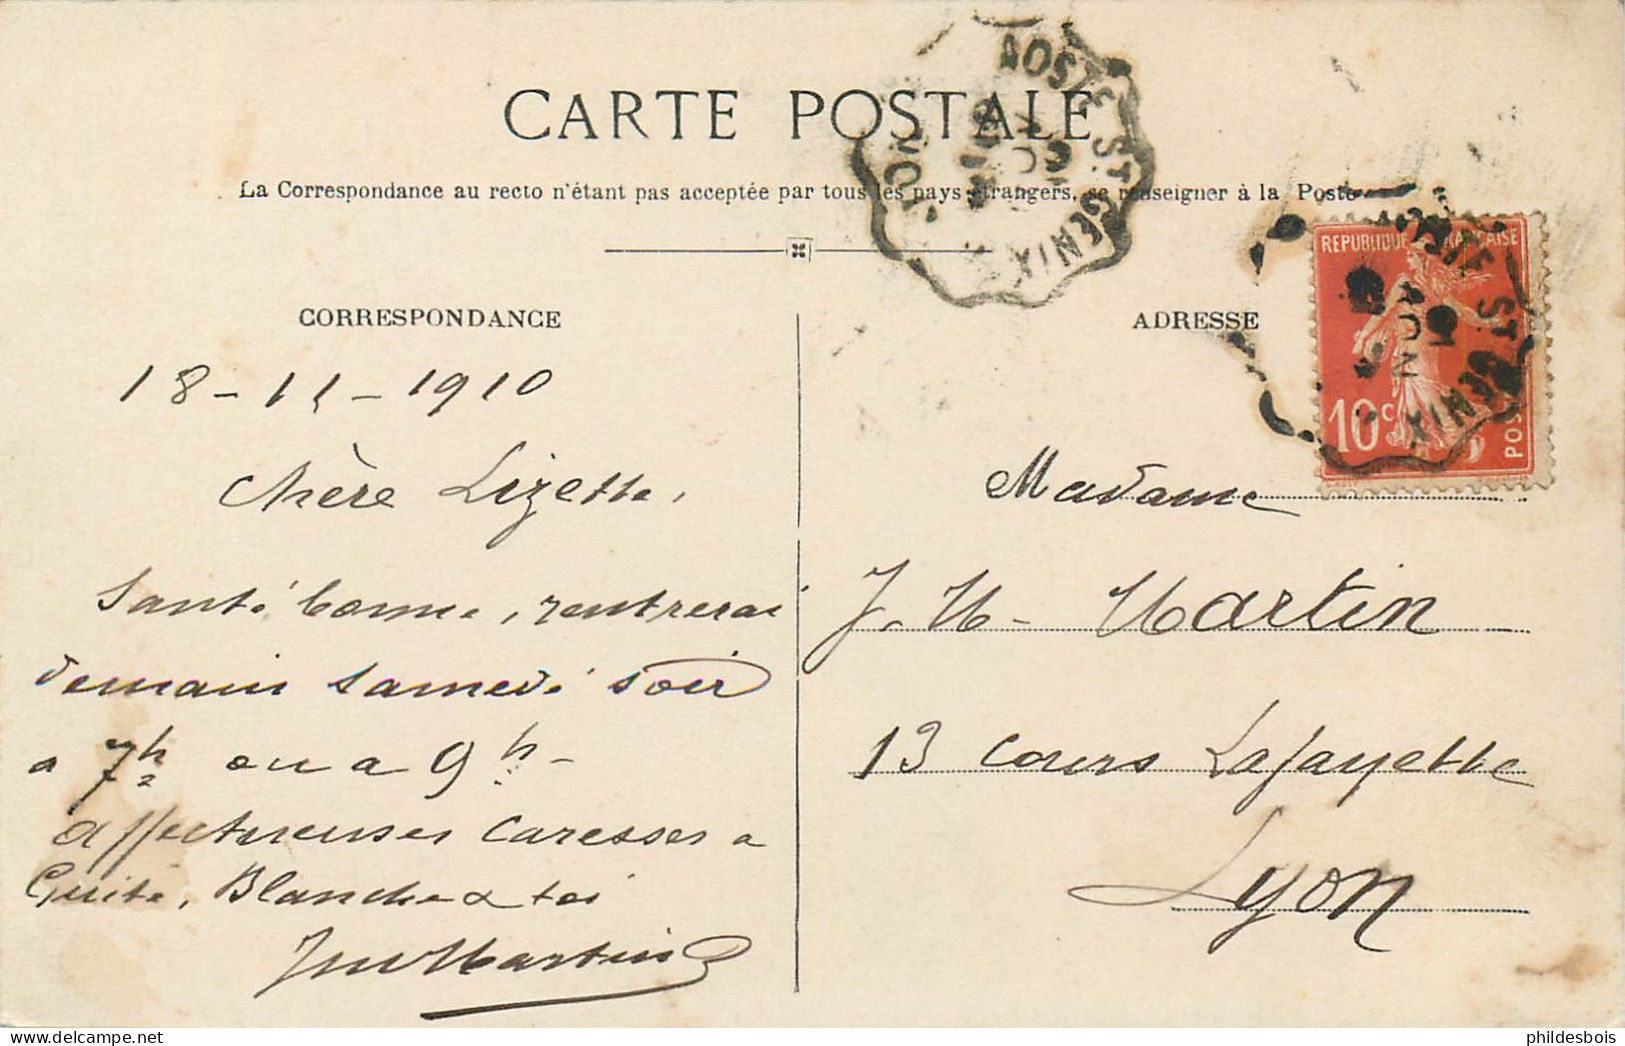 CARTE POSTALE
La Correspondance au recto n'étant pas acceptée par tous les pays étrangers, se renseigner à la Poste
AOSTE ST. GENIX
REPUBLIQUE FRANÇAISE
10c
POS
AOSTE ST GENIX
CORRESPONDANCE
18-11-1910
chère Lizette,
Santé bonne, rentrerai
demain samedi soir
a 7h ou a 9h-
affectueuses caresses a
Guite, Blanche & toi
Martin
ADRESSE
Madame
J. M. Martin
13 cours Lafayette
Lyon
phildesbois